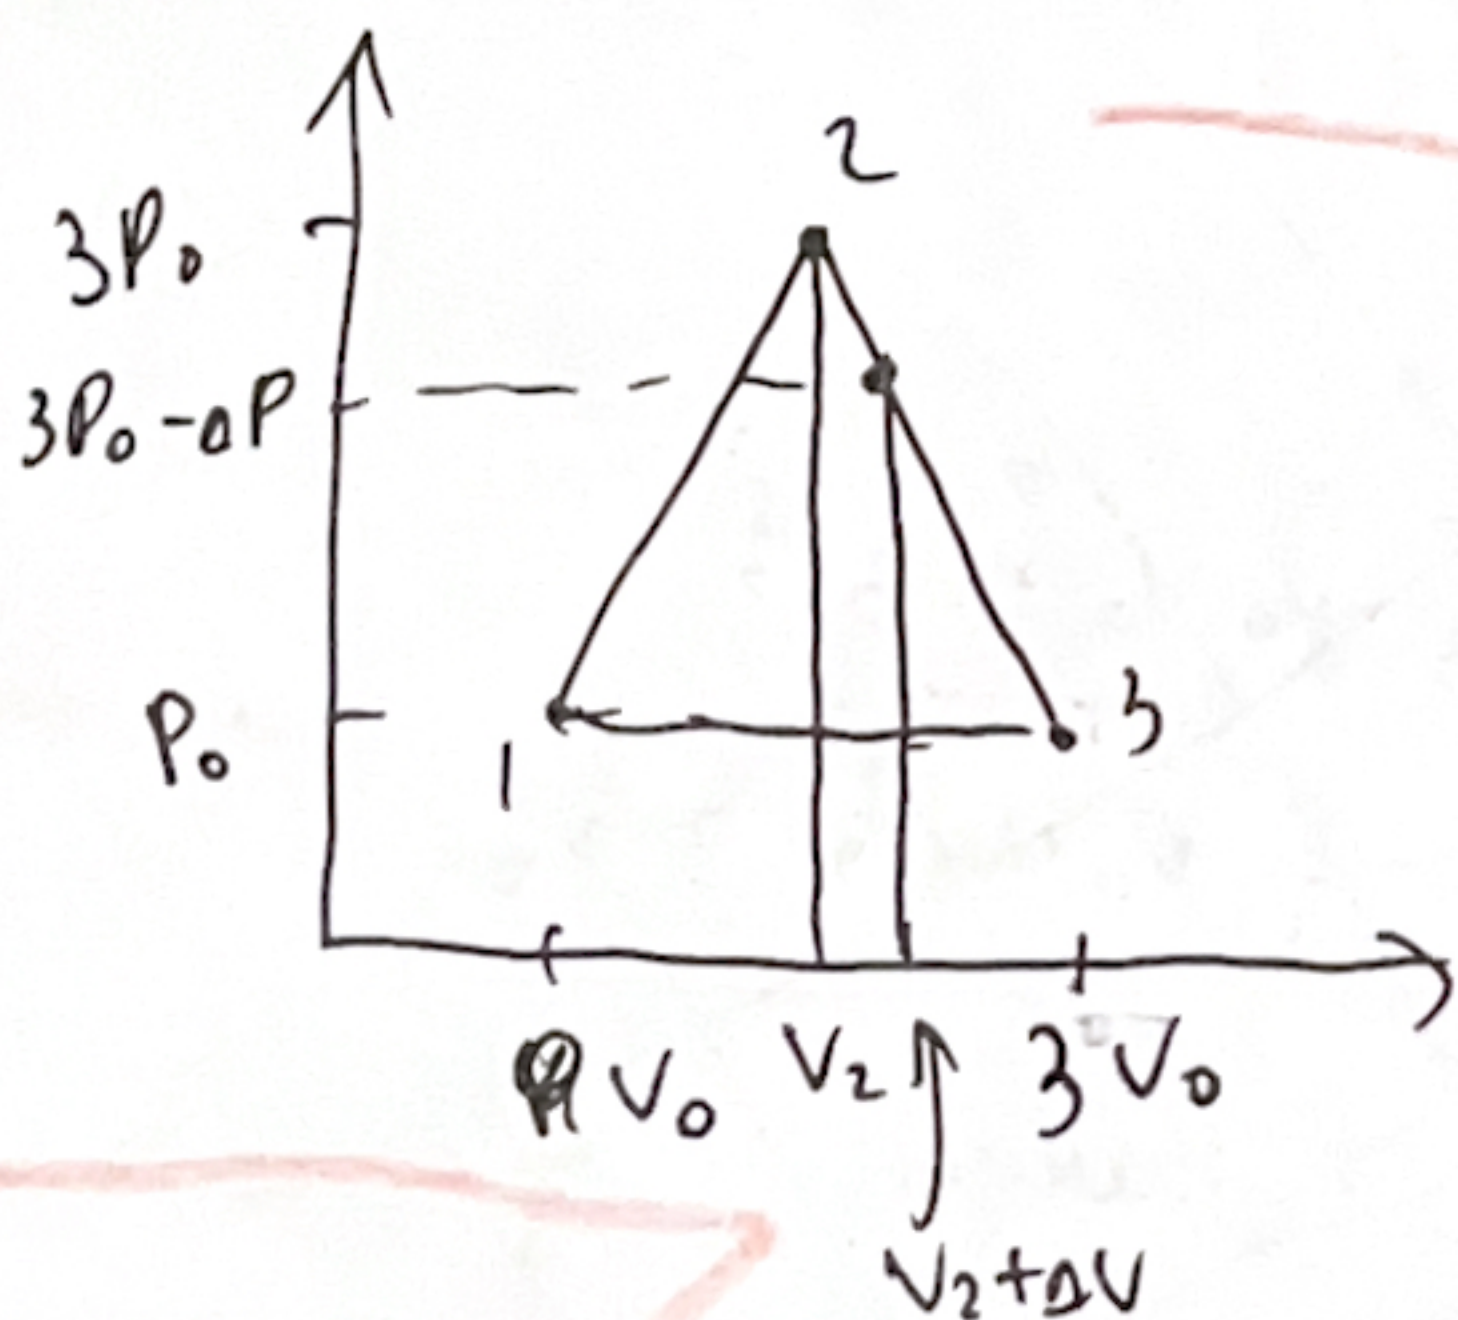 2
3P₀
3P₀-ΔP
P₀
1
3
V₀ V₂ 3V₀
V₂+ΔV